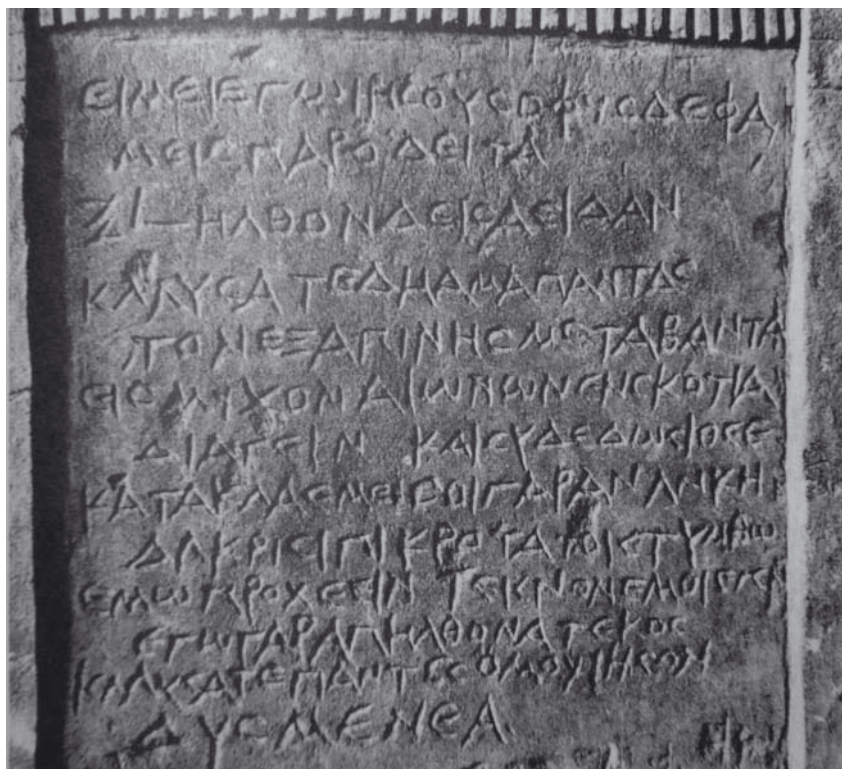 ΕΙΜΕΙΕΓΩΙΗϹΟΥϹΟΦΥϹΔΕΦΑ
ΜΕΙϹΠΑΡΟΔΕΙΤΑ
Ξ L ΗΛΘΟΝΔΕΙϹΑΕΙΔΑΝ
ΚΛΑΥϹΑΤΕΔΗΑΜΑΠΑΝΤΑϹ
ΤΟΝΕΞΑΠΙΝΗϹΜΕΤΑΒΑΝΤΑ
ΕΙϹΜΥΧΟΝΑΙΩΝΩΝΕΝϹΚΟΤΙΑ
ΔΙΑΓΕΙΝ ΚΑΙϹΥΔΕΔΩϹΙΘΕΕ
ΚΑΤΑΚΛΑΕΜΕϹΟΙΓΑΡΑΝΑΝΚΗ
ΔΑΚΡΙϹΙΠΙΚΡΟΤΑΤΟΙϹΤΥΜΒΩ
ΕΜΩΠΡΟΧΕΕΙΝ ΤΕΚΝΟΝΕΜΟΙ
ΕΓΩΓΑΡΑΠΗΛΘΟΝΑΤΕΚΟϹ
ΚΛΑΥϹΑΤΕΠΑΝΤΕϹΟΜΟΥΙΗϹΟΝ
ΔΥϹΜΕΝΕΑ